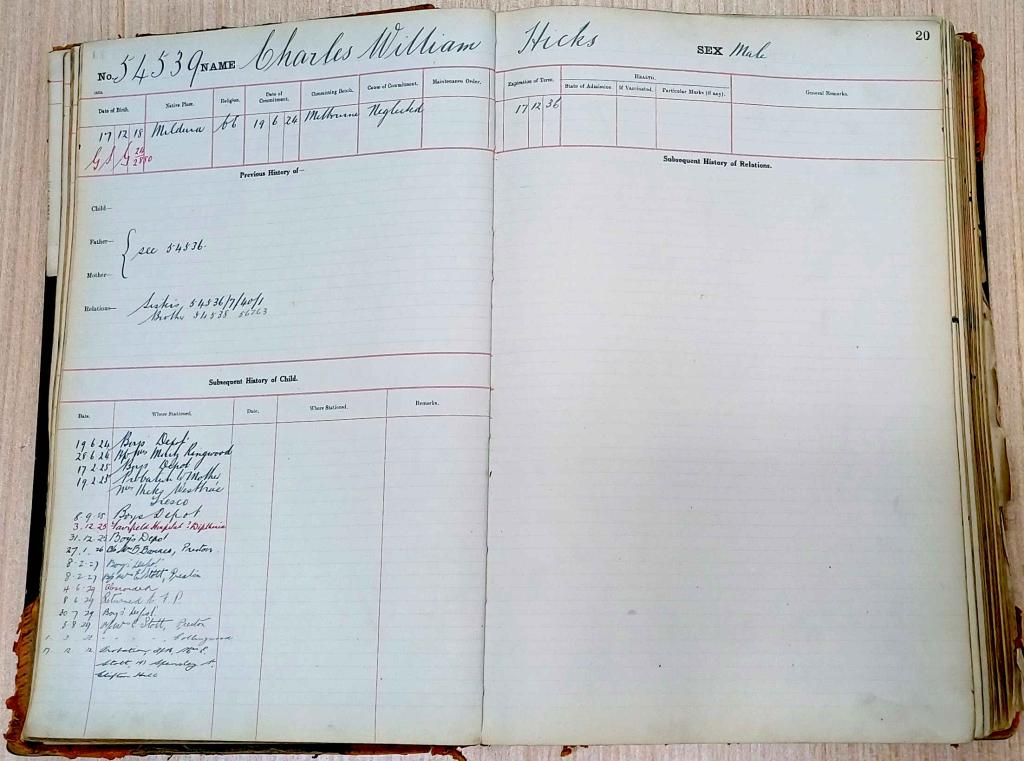 20
No. 54539 NAME Charles William Hicks SEX Male
Date of Birth. Native Place. Religion. Date of Commitment. Committing Bench. Cause of Commitment. Maintenance Order. Expiration of Term. HEALTH. General Remarks.
State of Admission. If Vaccinated. Particular Marks (if any).
17 12 18 Mildura 19 6 24 Melbourne Neglected 17 12 36
G S G
Previous History of— Subsequent History of Relations.
Child—
Father—
see 54536.
Mother—
Relations— Sisters, 54536/7/40/1
Brother 54538 56263
Subsequent History of Child.
Date. Where Stationed. Date. Where Stationed. Remarks.
19 6 24 Boys Depot
28 6 24 Mrs Ringwood
17 2 25 Boys Depot
19 2 25 Probation to Mother
Mrs Hicks
Fresco
8.9.25 Boys Depot
3.12.25 Fairfield Hospital ? Diptheria
31.12.25 Boys Depot
27.1.26 Barnes, Preston
8.2.27 Boys Depot
8.2.27 Mrs E Stott, Preston
4.6.29 Absconded
8 6 29 Returned to F.P.
30 7 29 Boys' Depot
3.8.29 Mrs E Stott, Preston
" " " " Collingwood
Probation Mrs E.
Stott, St.
Clifton Hill